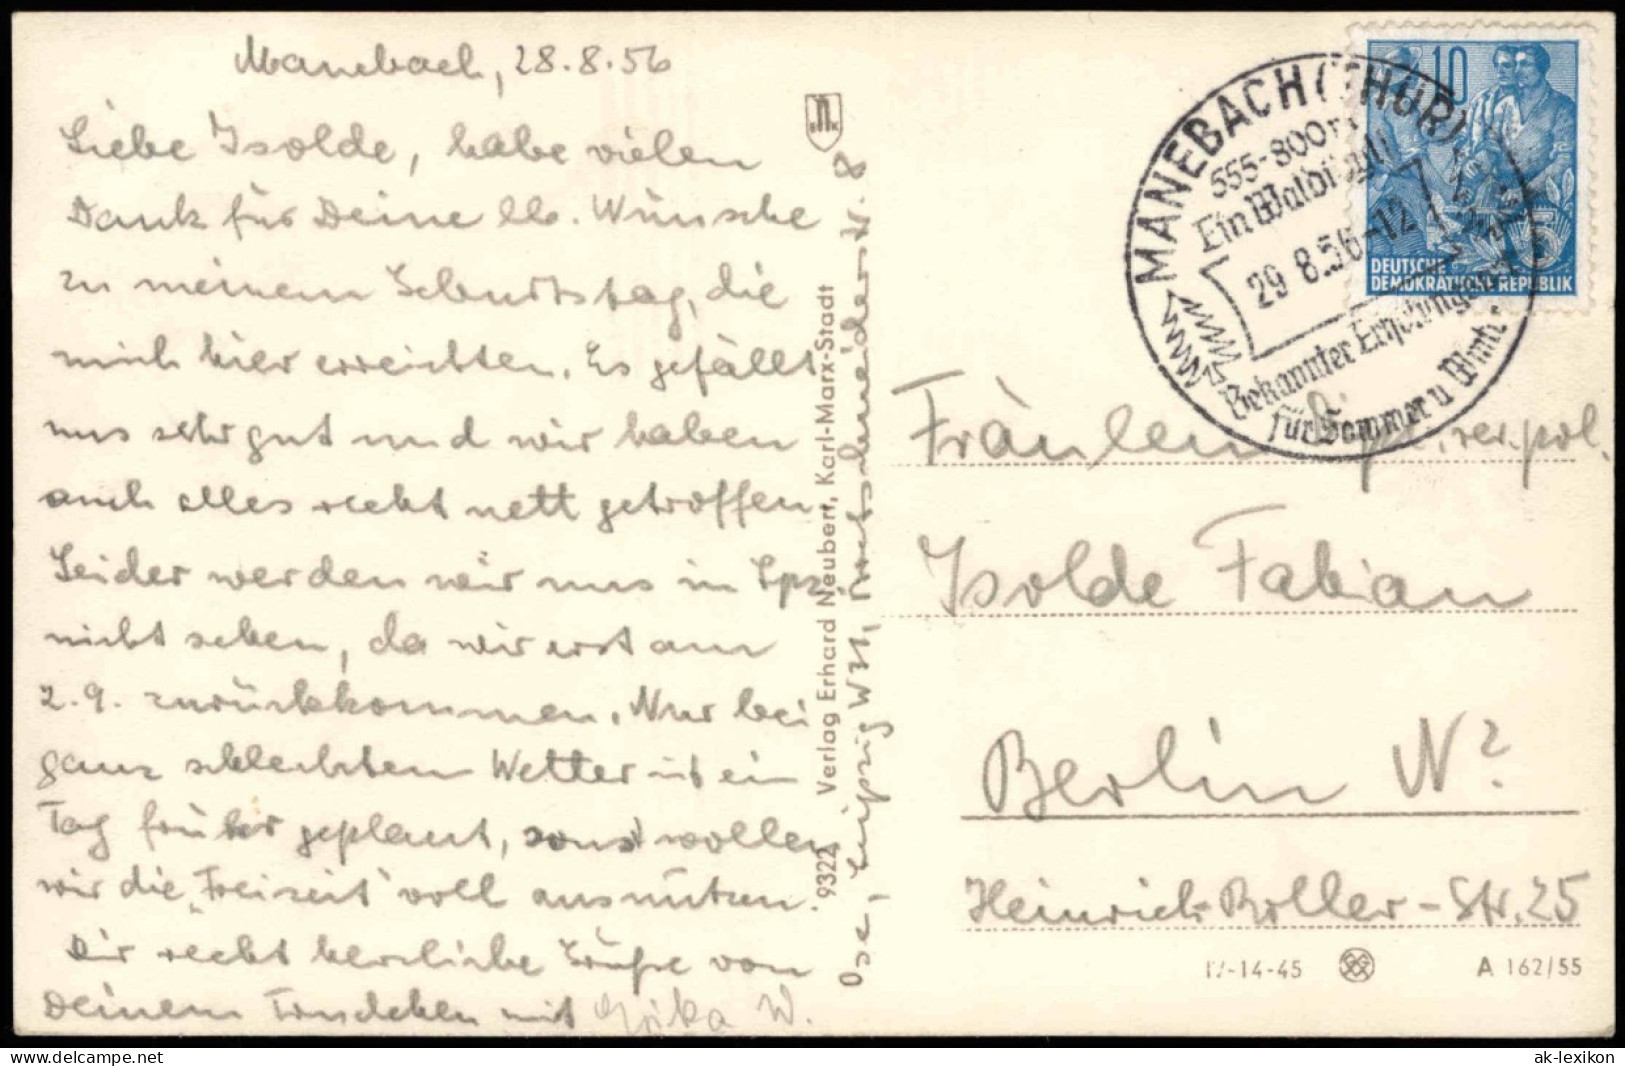 Manebach, 28.8.56
Liebe Isolde, habe vielen
Dank für Deine lb. Wünsche
zu meinem Geburtstag, die
mich hier erreichten. Es gefällt
uns sehr gut und wir haben
auch alles recht nett getroffen.
Leider werden wir uns in Lpz.
nicht sehen, da wir erst am
2.9. zurückkommen. Nur bei
ganz schlechtem Wetter ist ein
Tag früher geplant, sonst wollen
wir die „Freizeit" voll ausnützen.
Dir recht herzliche Grüße von
Deinem
mit
W.
9322 Verlag Erhard Neubert, Karl-Marx-Stadt
Leipzig W31,
8
MANEBACH (THÜR)
555-800m
Ein Waldidyll
29 8.56-12
Bekannter Erholungsort
für Sommer u Wint.
10
DEUTSCHE
DEMOKRATISCHE REPUBLIK
Fräulein
Isolde Fabian
Berlin N?
Heinrich-Roller-Str. 25
-14-45
A 162/55
ak-lexikon